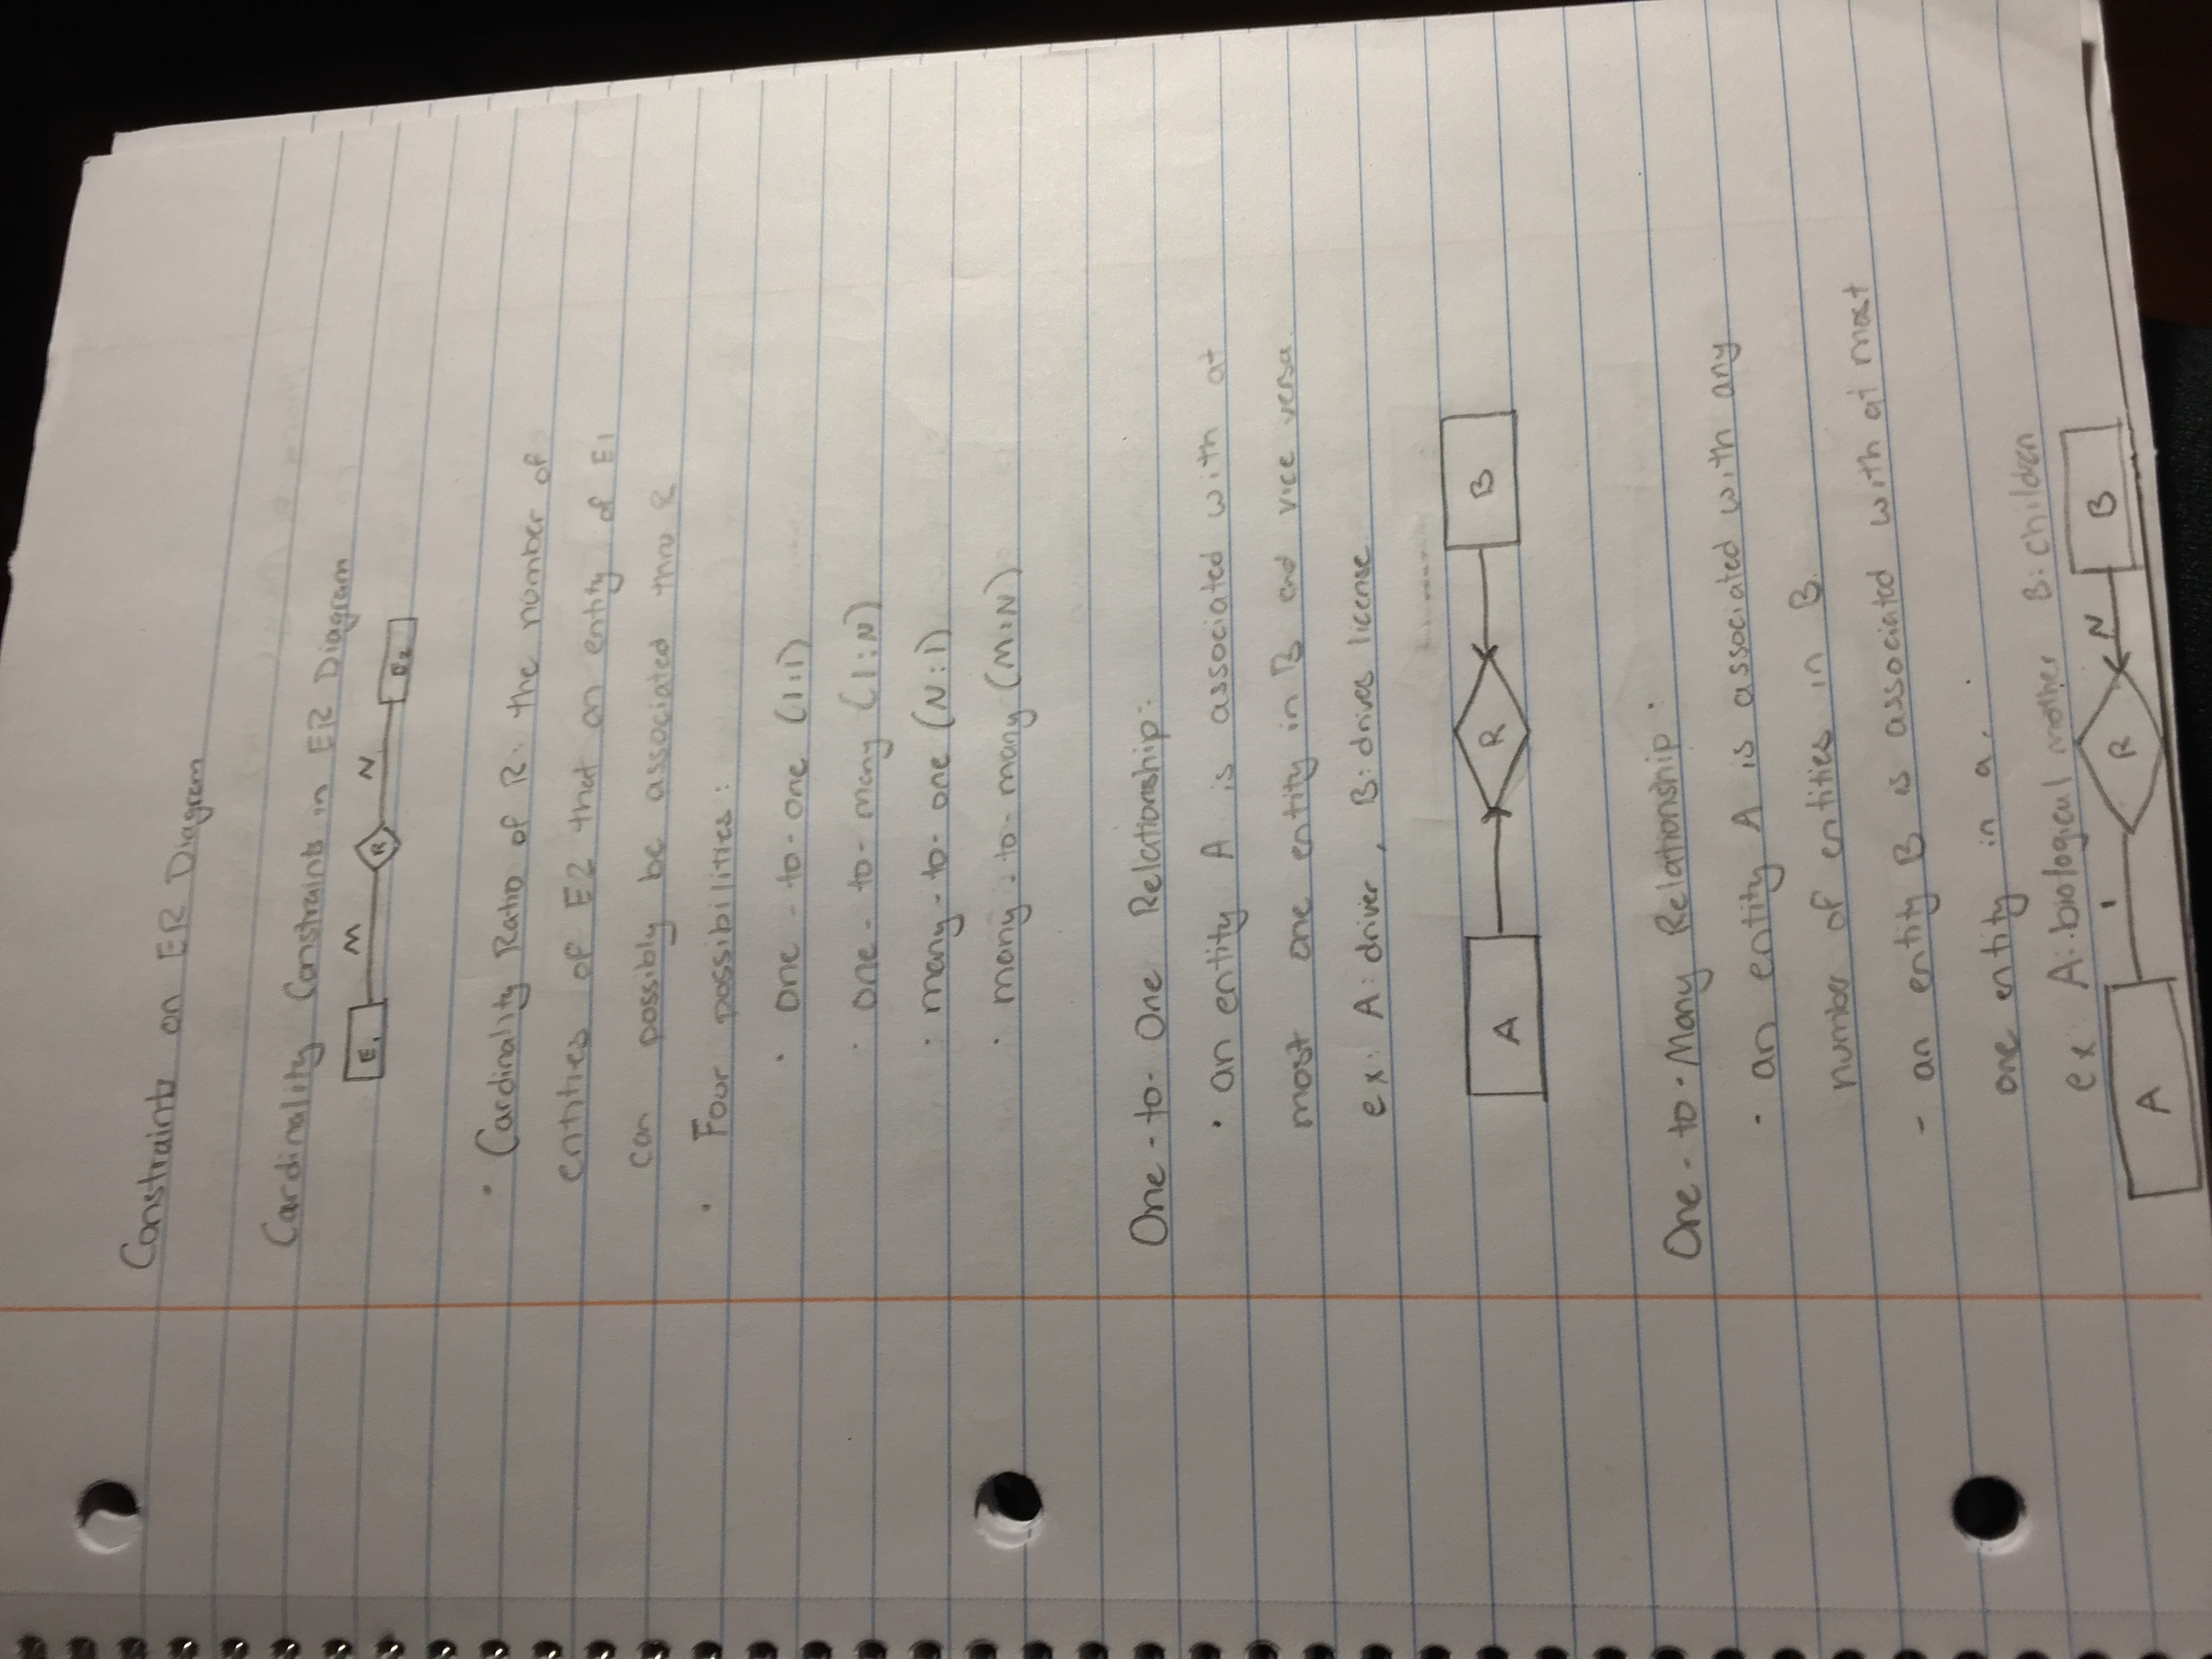 Constraints on ER Diagram
Cardinality Constraints in ER Diagram
E1 M R N E2
· Cardinality Ratio of R: the number of
entities of E2 that an entity of E1
can possibly be associated thru R
· Four possibilities:
· one-to-one (1:1)
· one-to-many (1:N)
· many-to-one (N:1)
· many-to-many (M:N)
One-to-One Relationship:
· an entity A is associated with at
most one entity in B and vice versa.
ex: A: driver, B: drives license.
A R B
One-to-Many Relationship:
- an entity A is associated with any
number of entities in B.
- an entity B is associated with at most
one entity in a.
ex A: biological mother B: children
A 1 R N B